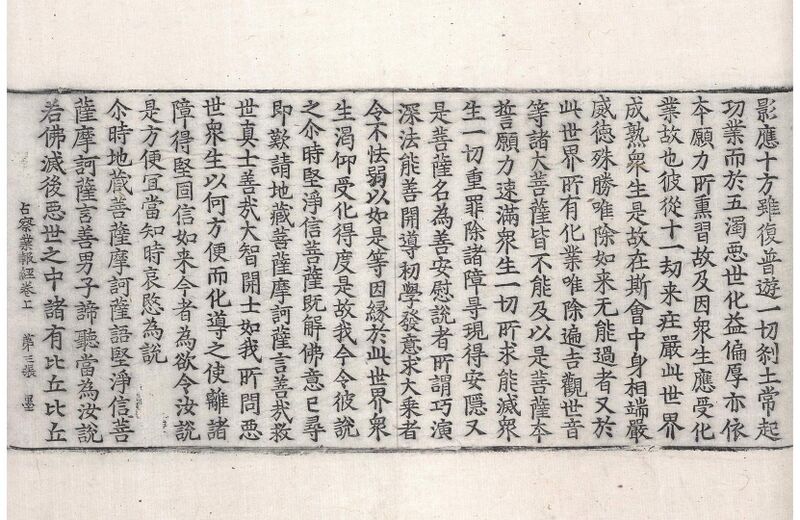 影應十方雖復普遊一切刹土常起
功業而於五濁惡世化益偏厚亦依
夲願力所熏習故及因衆生應受化
業故也彼從十一劫来莊嚴此世界
成熟衆生是故在斯會中身相端嚴
威德殊勝唯除如来无能過者又於
此世界所有化業唯除遍吉觀世音
等諸大菩薩皆不能及以是菩薩夲
誓願力速滿衆生一切所求能滅衆
生一切重罪除諸障㝵現得安隱又
是菩薩名為善安慰說者所謂巧演
深法能善開導初學發意求大乘者
令不怯弱以如是等因緣於此世界衆
生渴仰受化得度是故我今令彼說
之尒時堅淨信菩薩既解佛意已尋
即歎請地藏菩薩摩訶薩言善㢤救
世真士善㢤大智開士如我所問惡
世衆生以何方便而化導之使離諸
障得堅固信如来今者為欲令汝說
是方便宜當知時哀愍為說
尒時地藏菩薩摩訶薩語堅淨信菩
薩摩訶薩言善男子諦聽當為汝說
若佛滅後惡世之中諸有比丘比丘
占察業報經卷上 第三張 墨